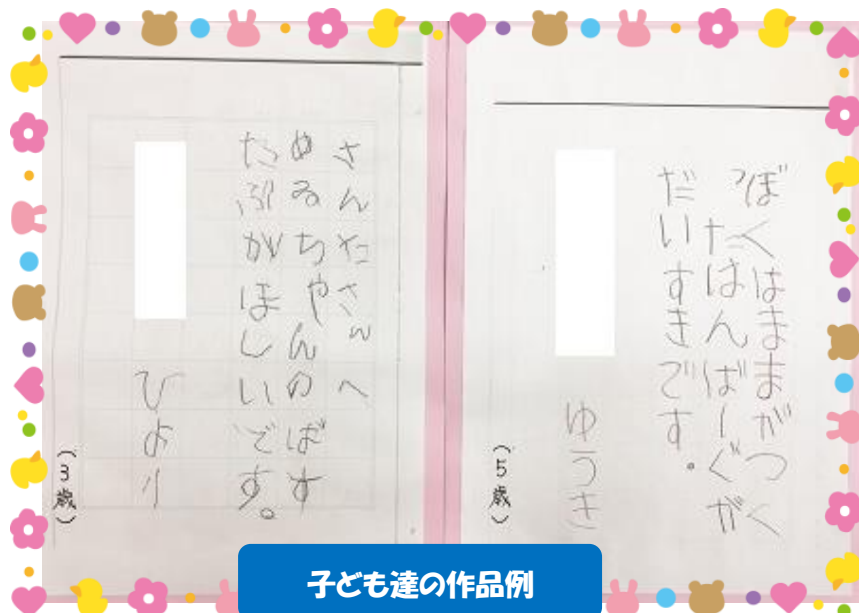 ぼくはままがつく
ったはんばーぐが
だいすきです。
ゆうき
(5歳)
さんたさんへ
めるちゃんのばす
たぶがほしいです。
ひより
(3歳)
子ども達の作品例